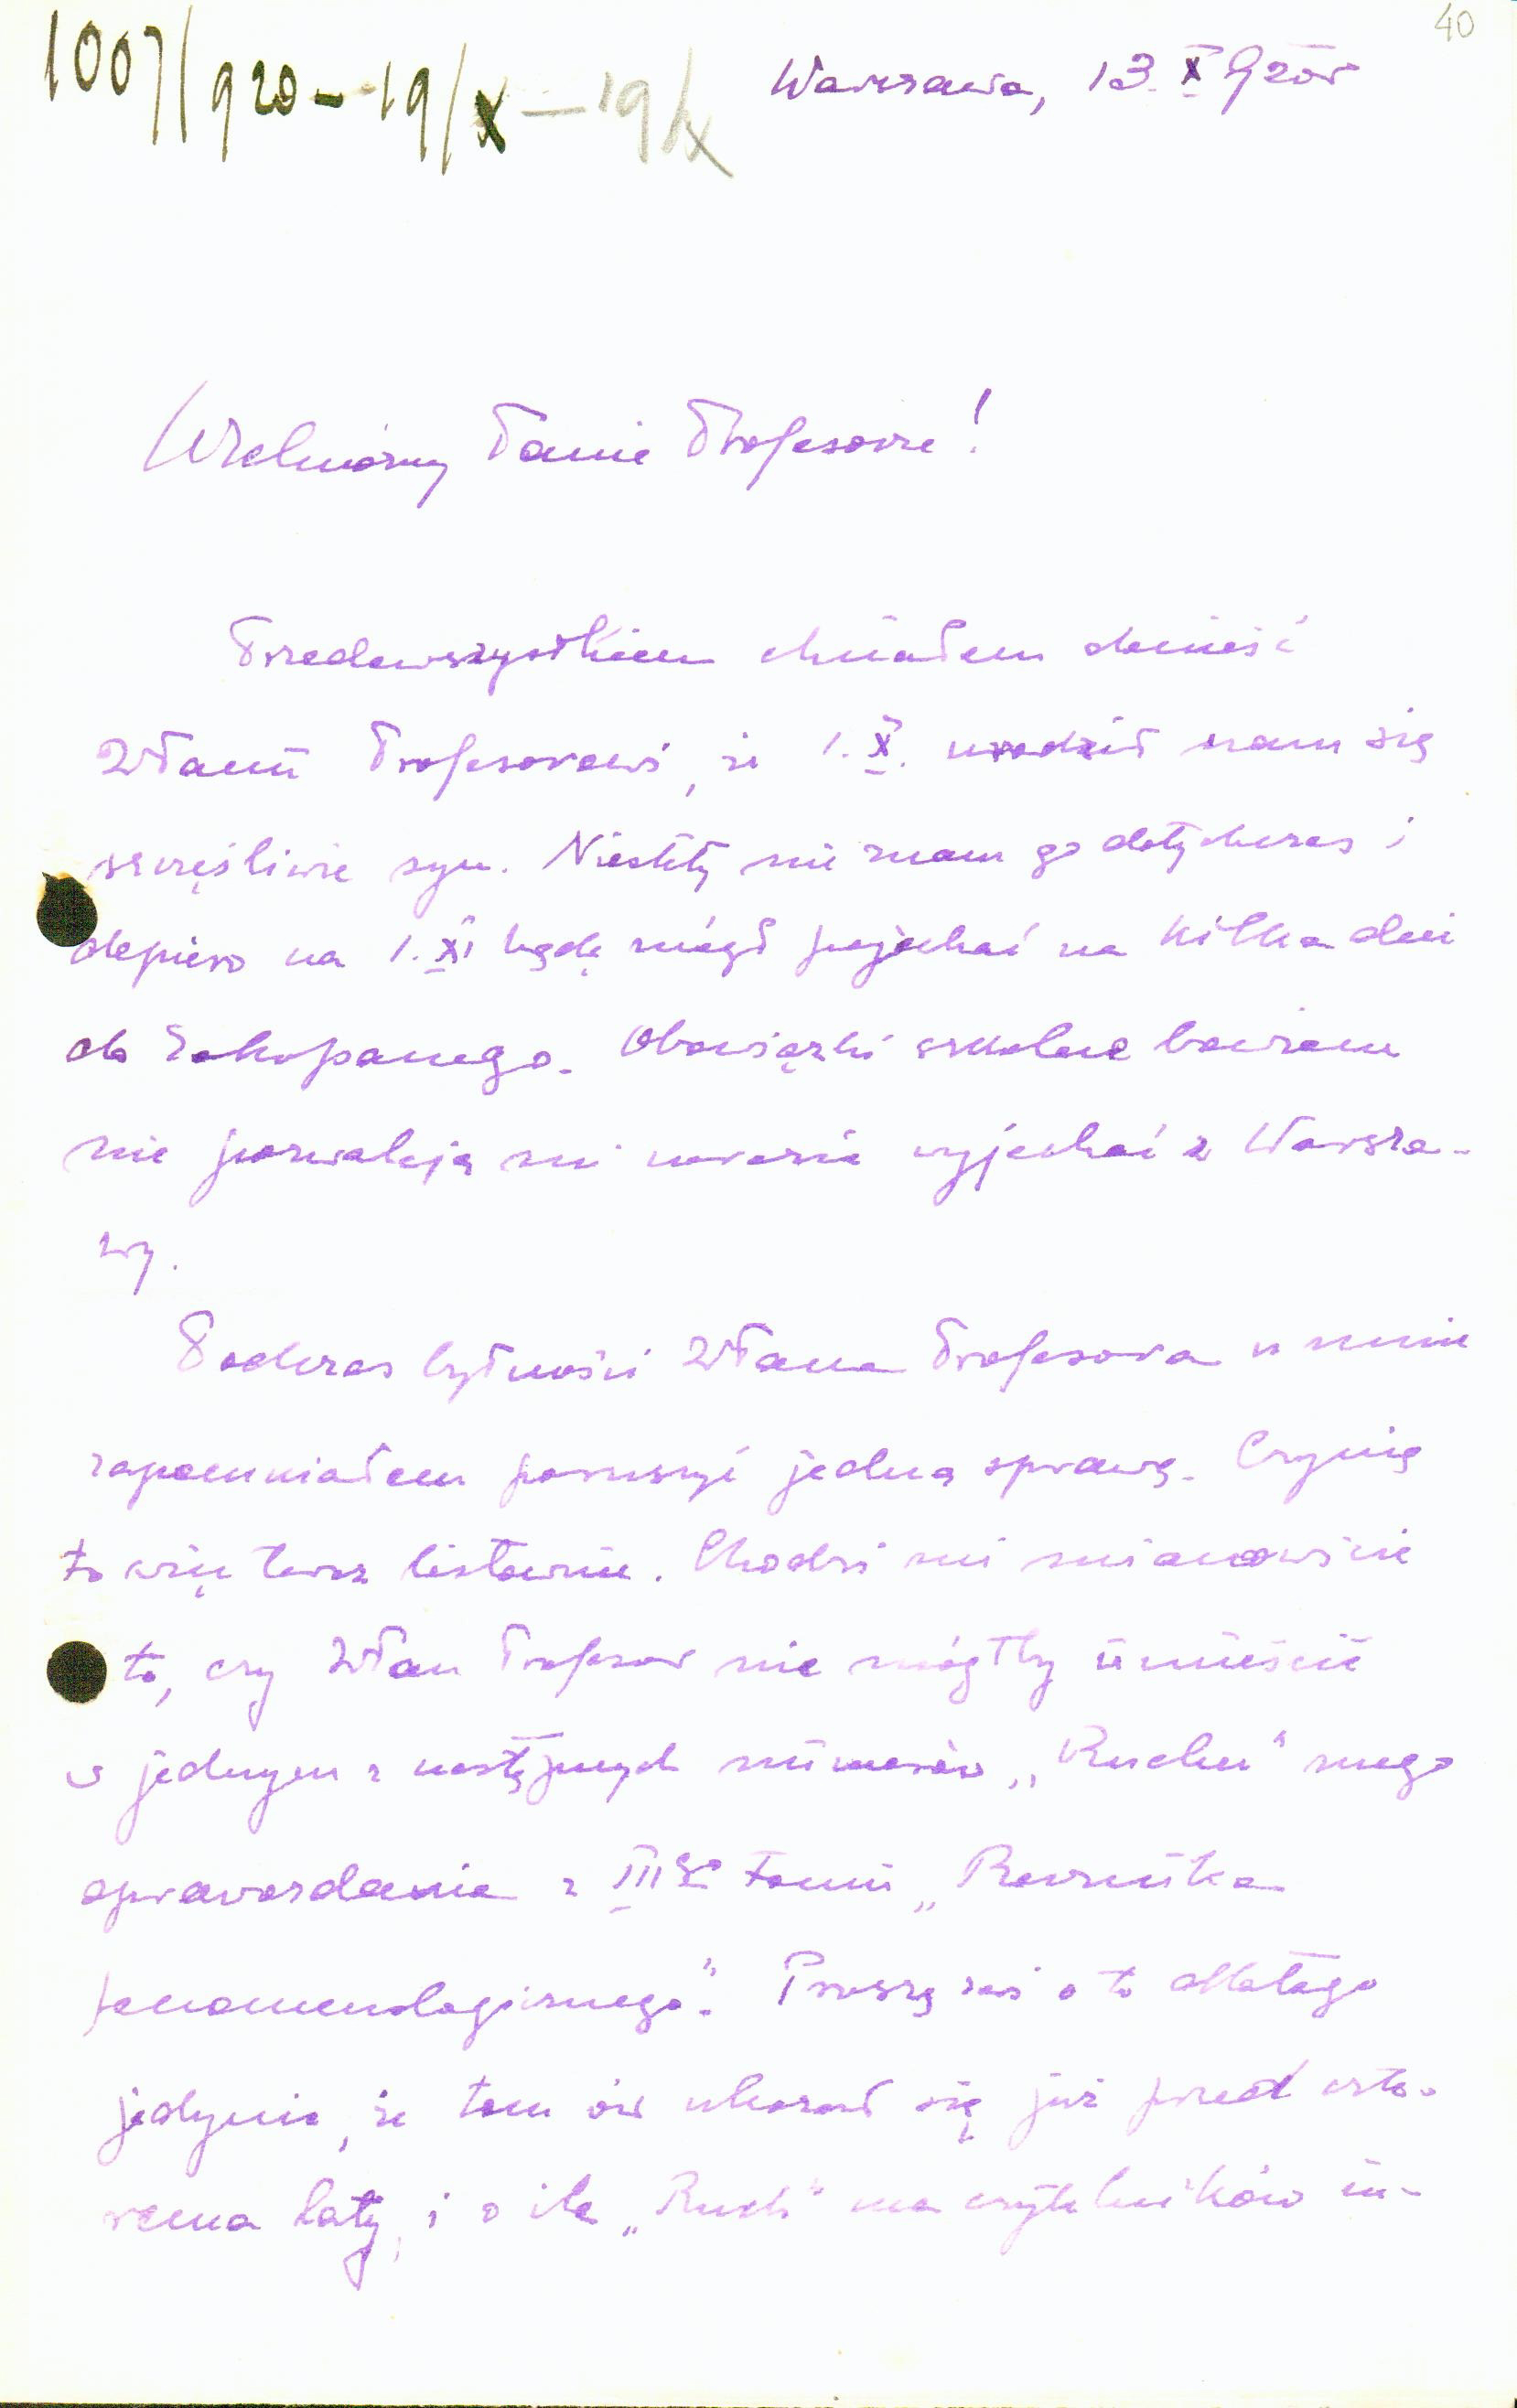 40
1007/920-19/X-19/X
Warszawa, 13. X 920r
Wielmożny Panie Profesorze!
Przedewszystkiem chciałem donieść
WPanu Profesorowi, że 1. X. urodził nam się
szczęśliwie syn. Niestety nie znam go dotychczas i
dopiero na 1. XI będę mógł pojechać na kilka dni
do Zakopanego. Obowiązki szkolne bowiem
nie pozwalają mi narazie wyjechać z Warsza-
wy.
Podczas bytności WPana Profesora u mnie
zapomniałem poruszyć jedną sprawę. Czynię
to więc teraz listownie. Chodzi mi mianowicie
to, czy WPan Profesor nie mógłby umieścić
w jednym z następnych numerów „Ruchu" mego
sprawozdania z III go tomu „Rocznika
fenomenologicznego". Proszę zaś o to dlatego
jedynie, że tom ów ukazał się już przed czte-
rema laty, i o ile „Ruch" ma czytelników in-